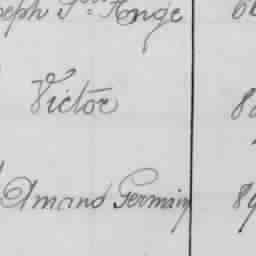 seph St Ange
Victor
Amand Germain 89